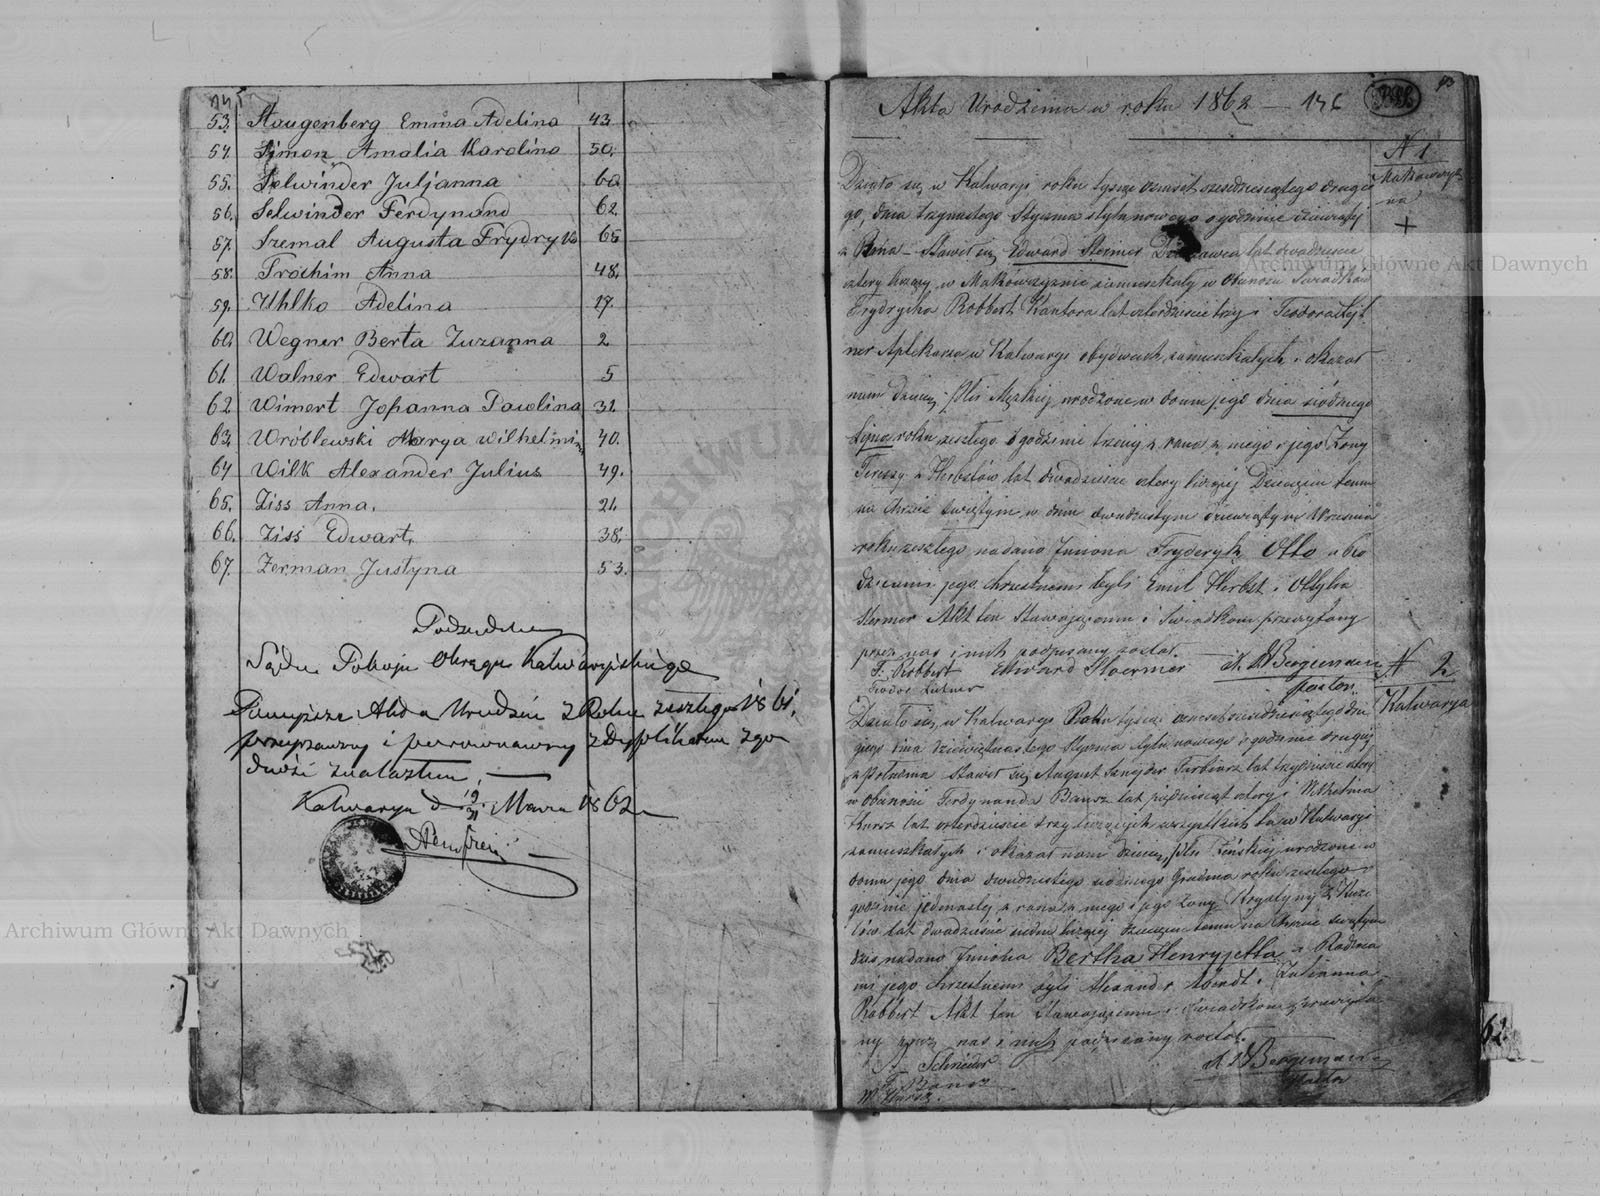 145
53. Staugenberg Emma Adelina 43
54. Simon Amalia Karolina 50.
55. Selwinder Juljanna 60
56. Selwinder Ferdynand 62
57. Szemal Augusta Frydryka 65
58. Trochim Anna 48.
59. Uhlko Adelina 17.
60. Wegner Berta Zuzanna 2
61. Walner Edwart 5
62. Wimert Johanna Pawlina 32.
63. Wróblewski Marya Wilhelmina 40.
64. Wilk Alexander Julius 49.
65. Ziss Anna. 21.
66. Ziss Edwart. 38.
67. Zerman Justyna 53.
Podsędek
Sądu Pokoju Okręgu Kalwaryjskiego
Powyższe Akta Urodzin z Roku zeszłego 1861.
przejrzawszy i porównawszy z Duplikatem zgo
dność znalazłem, —
Kalwarya d 9/21 Marca 1862
Archiwum Główne Akt Dawnych
Akta Urodzenia w roku 1862 — 146
N 1
Działo się w Kalwaryi roku tysiąc ośmset sześdziesiątego drugie
go, dnia trzynastego Stycznia stylu nowego o godzinie dziewiątej
z Rana — Stawił się Edward Stermer Dzierżawca lat dwadzieście
cztery liczący, w Makowszyznie zamieszkały w Obecności Świadków
Frydrycha Robbert Kantora lat czterdzieście trzy i Teodora Lejt
ner Aptekarza w Kalwaryi obydwóch zamieszkałych i okazał
nam dziecię płci Męzkiej urodzone w domu jego dnia siódmego
Lipca roku zeszłego o godzinie trzeciej z rana z niego i jego Żony
Teressy z Herbstów lat dwadzieście cztery liczącej Dziecięciu temu
na Chrzcie Świętym w dniu dwudziestym dziewiątym Września
roku zeszłego nadano Imiona Fryderyk Otto a Ro
dzicami jego chrzestnemi byli Emil Herbst i Ottylia
Stermer Akt ten Stawającemu i Świadkom przeczytany
przez nas i nich podpisany został. —
F. Robbert Edward Stoermer A. W Bergemann
Teodor Leitner Pastor.
N 2
Kalwarya
Działo się w Kalwaryi Roku tysiąc ośmset sześdziesiątego dru
giego dnia dziewiętnastego Stycznia stylu nowego o godzinie drugiej
z Południa Stawił się August Sznyder Farbiarz lat trzydzieście cztery
w obecności Ferdynanda Bansz lat pięćdziesiąt cztery i Wilhelma
Kursz lat czterdzieście trzy liczących wszystkich tu w Kalwaryi
zamieszkałych i okazał nam dziecię płci Żeńskiej urodzone w
domu jego dnia dwudziestego siódmego Grudnia roku zeszłego o
godzinie jedenastej z rana z niego i jego Żony Krystyny z
lów lat dwadzieście siedm liczącej dziecięciu temu na Chrzcie świętym
dziś nadano Imiona Bertha Henryjetta a Rodzica
mi jego chrzestnemi byli Alexander Wendt i Julianna
Robbert Akt ten Stawającemu i Świadkom przeczyta
ny przez nas i nich podpisany został.
A. Schneider A. W Bergemann
F. Bansz Pastor
W Kursz.
Archiwum Główne Akt Dawnych